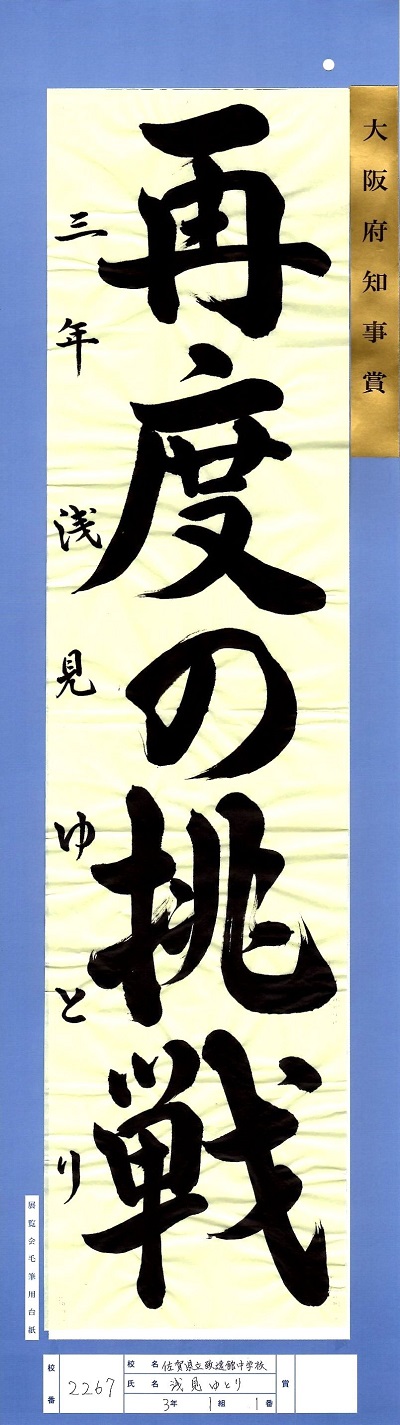 大阪府知事賞
再度の挑戦
三年 浅見ゆとり
展覧会毛筆用台紙
校番 2267
校名 佐賀県立致遠館中学校
氏名 浅見ゆとり
3年 1組 1番
賞